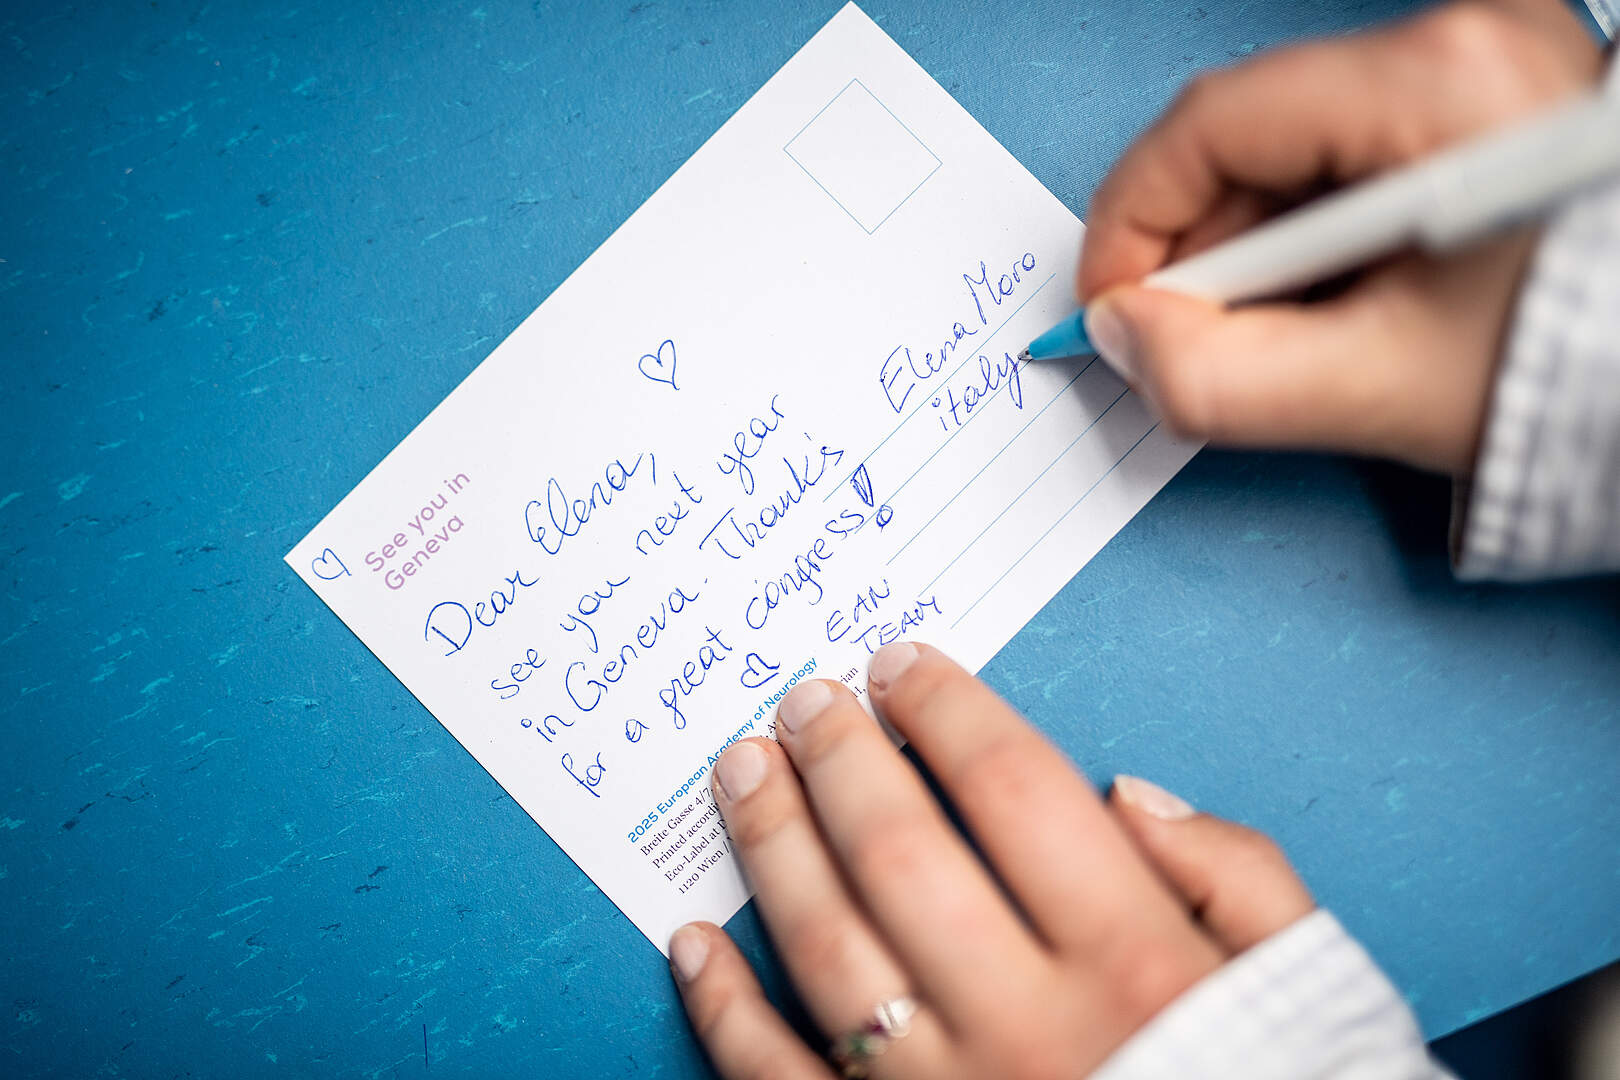 See you in
Geneva
Dear Elena,
see you next year
in Geneva. Thank's
for a great congress!
EAN
TEAM
Elena Moro
italy
2025 European Academy of Neurology
Breite Gasse 4/7
Printed accordi
Eco-Label at
1120 Wien /